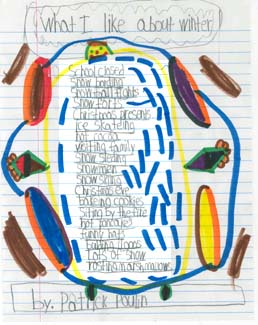 What I like about winter
school closed
snow boarding
snow ball fights
snow forts
Christmas presents
ice skateing
hot cocoa
visiting family
snow sleding
snowmen
snow suits
Christmas eve
bakeing cookies
siting by the fire
hot
funny hats
Lots of snow
rosting marshmallows
by: Patrick Poulin